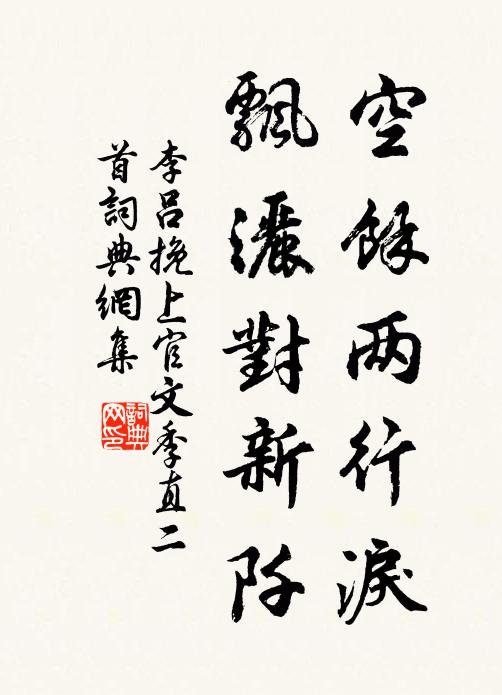 空餘两行淚
飄灑對新阡
李吕挽上官文季直二
首詞典網集
詞典网印